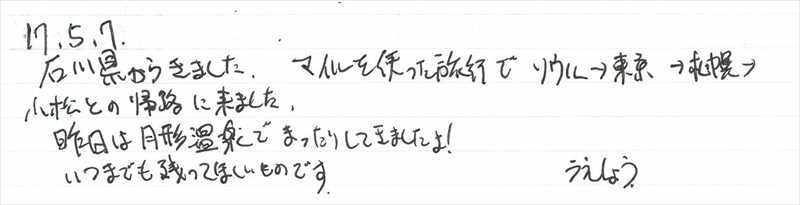 17.5.7.
石川県からきました。 マイルを使った旅行で ソウル→東京→札幌→
小松との帰路に来ました。
昨日は月形温泉でまったりしてきましたよ!
いつまでも残ってほしいものです。 うえしょう。